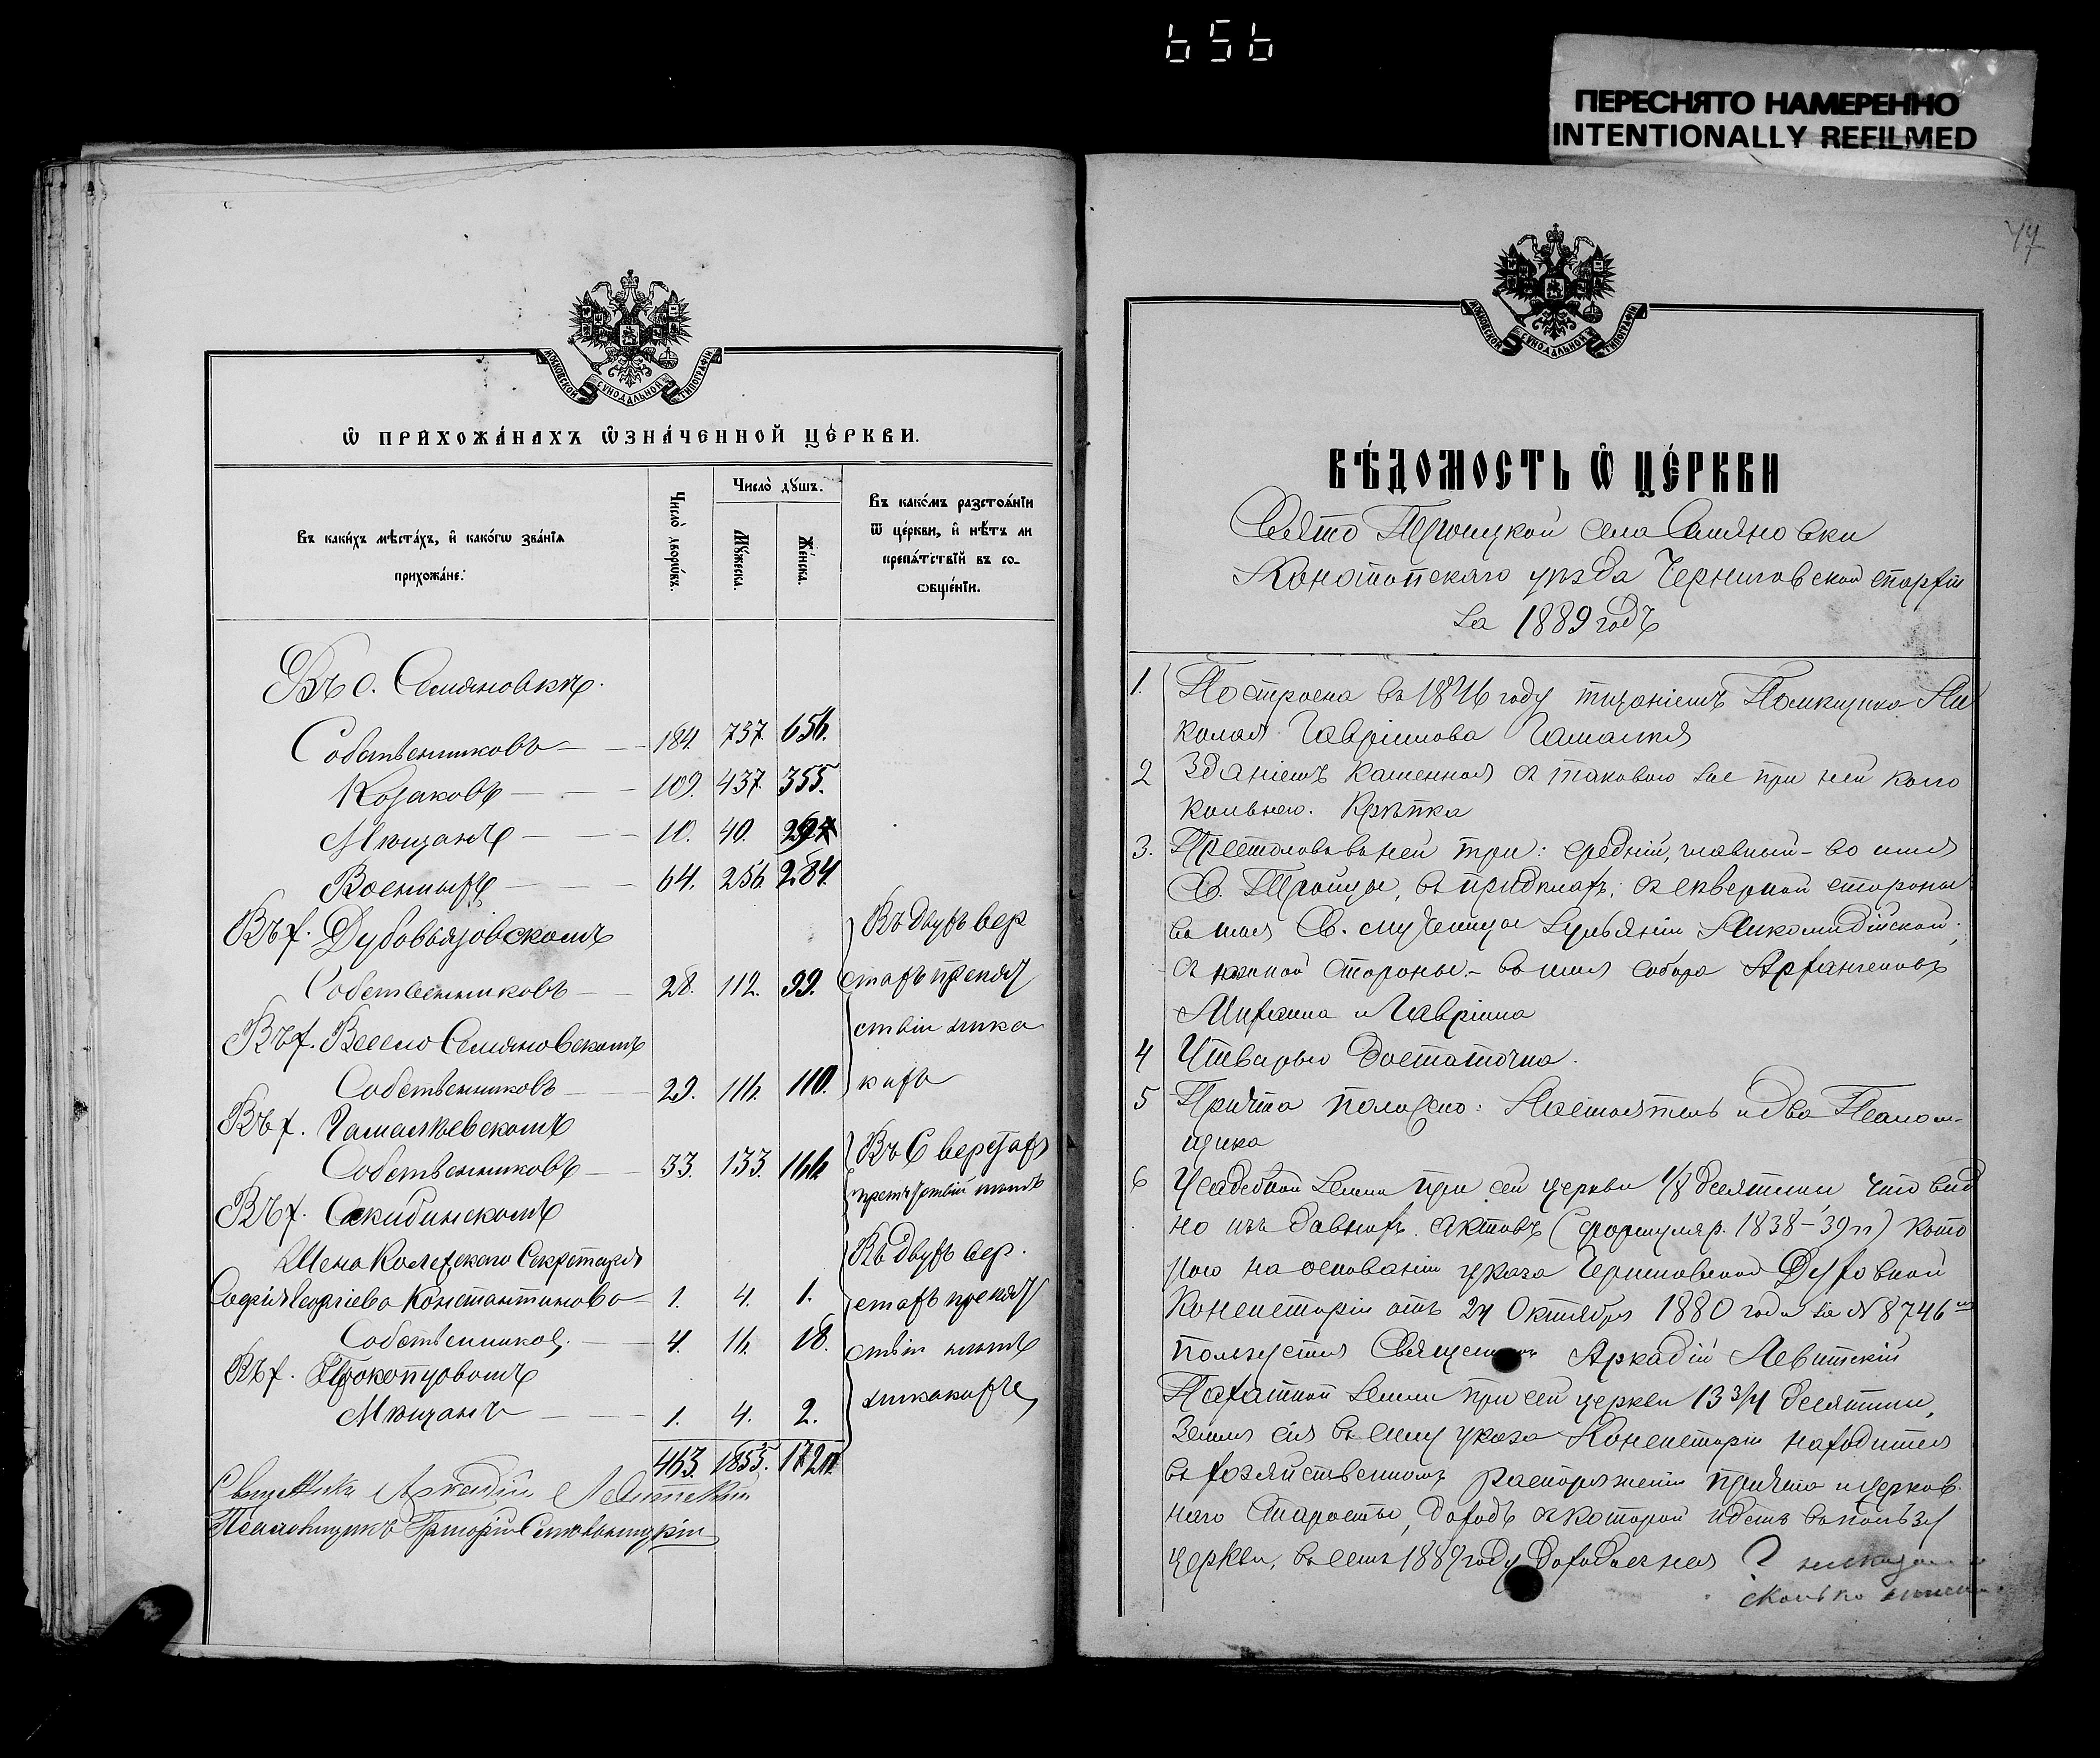 656
ПЕРЕСНЯТО НАМЕРЕННО
INTENTIONALLY REFILMED
МОСКОВСКОЙ СѴНОДАЛЬНОЙ ТИПОГРАФІИ
Ѡ ПРИХОЖА́НАХЪ Ѡ҆ЗНА́ЧЕННОЙ ЦЕ́РКВИ.
Въ каки́хъ мѣста́хъ, и҆ како́гѡ зва́нїѧ
прихожа́не:
Число̀ дворѡ́въ.
Число̀ дꙋ́шъ.
Мꙋ́жеска.
Же́нска.
Въ како́мъ разстоѧ́нїи
ѿ це́ркви, и҆ нѣ́тъ ли
препѧ́тствїй въ со-
ѻбще́нїи.
Въ с. Семяновкѣ.
Собственниковъ 184. 737. 656.
Козаковъ 109. 437. 355.
Мѣщанъ 10. 40.
Военныхъ 64. 256. 284.
Въ х. Дубовьязовскомъ
Въ двухъ вер
Собственниковъ 28. 112. 99.
стахъ препят
Въ х. Весело Семяновскомъ
ствій ника
Собственниковъ 29. 116. 110.
кихъ
Въ х. Гамалѣевскомъ
Въ 6 верстахъ
Собственниковъ 33. 133.
препятствій нѣтъ
Въ х. Скибинскомъ
Въ двухъ вер.
Жена Колежскаго Секретаря
Софія Георгіева Константинова 1. 4. 1.
стахъ препят
Собственников. 4. 16. 18.
ствій нѣтъ
Въ х. Прокопцовомъ
никакихъ
Мѣщанъ 1. 4. 2.
463. 1855.
Священникъ Аркадій Левитскій
Псаломщикъ Григорій
47
МОСКОВСКОЙ СѴНОДАЛЬНОЙ ТИПОГРАФІИ
ВѢ́ДОМОСТЬ Ѡ҆ ЦЕ́РКВИ
Свято Троицкой села Семяновки
Конотопскаго уѣзда Черниговской епархіи
за 1889 годъ
1. Построена въ 1846 году тщаніемъ Помѣщика Ни
колая Гавріилова Гамалѣя
2 Зданіемъ каменная съ таковою же при ней коло
кольнею. Крѣпка
3. Престоловъ въ ней три: средній, главный – во имя
Св. Троицы, въ придѣлахъ: съ сѣверной стороны
во имя Св. мученицы Іульяніи Никомидійской;
съ южной стороны – во имя собора Архангеловъ
Михаила и Гавріила
4 Утварью достаточна.
5 Причта положено: Настоятель и два Псалом-
щика
6 Усадебной земли при сей церкви 1/8 десятины что вид
но изъ давнихъ актовъ (формуляр. 1838–39 г) кото
рою на основаніи указа Черниговской Духовной
Консисторіи отъ 24 Октября 1880 года за № 8746
пользуется Священникъ Аркадій Левитскій
Пахатной земли при сей церкви 13 3/4 десятины,
Земля сія въ силу указа Консисторіи находится
въ хозяйственномъ распоряженіи причта и церков.
наго старосты, доходъ съ которой идетъ въ пользу
церкви, въ семъ 1889 году доходъ съ нея ? не указано
сколько